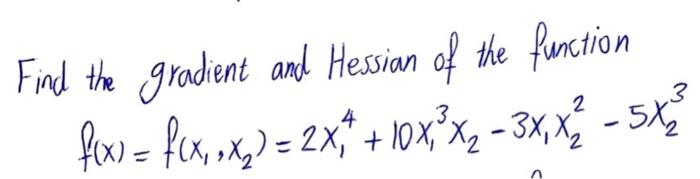 Find the gradient and Hessian of the function
f(x) = f(x₁, x₂) = 2x₁⁴ + 10x₁³x₂ - 3x₁x₂² - 5x₂³